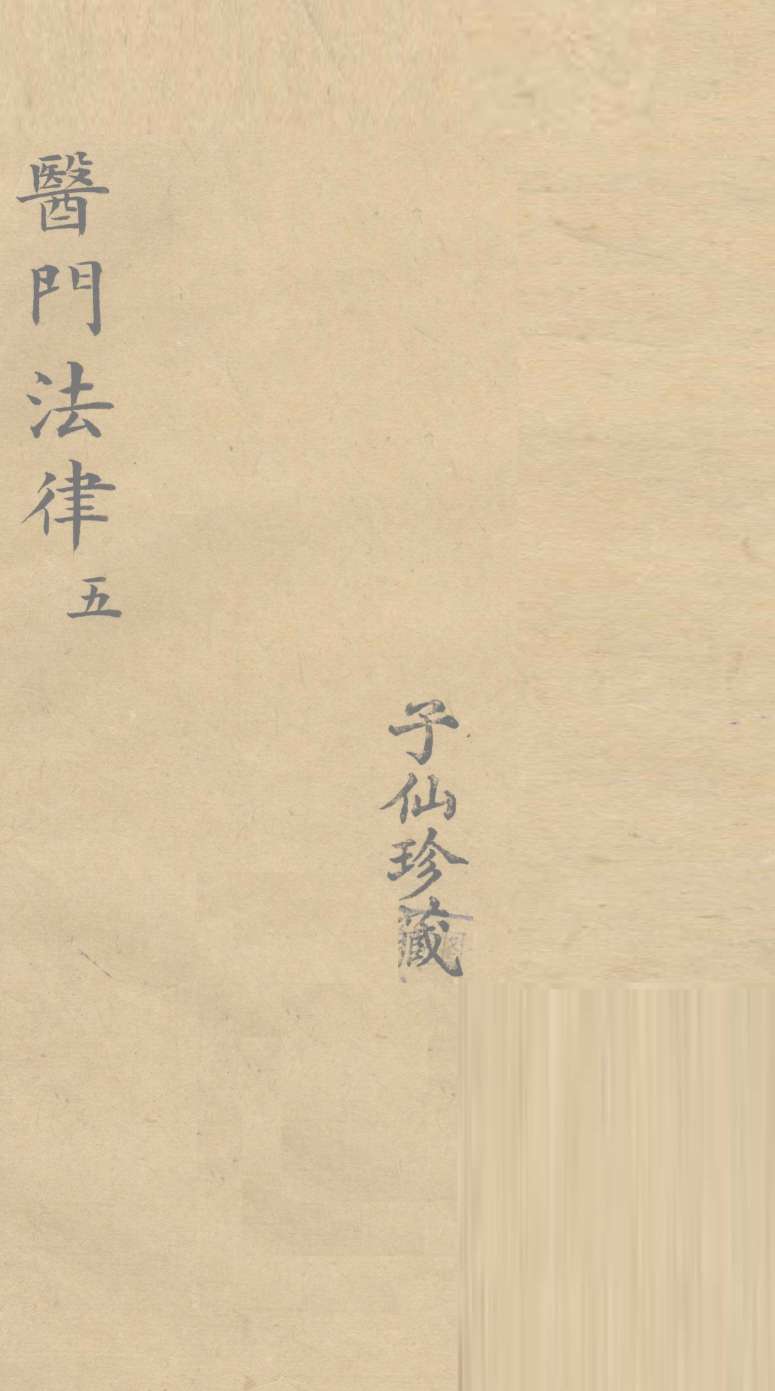 子仙珍藏
醫門法律 五